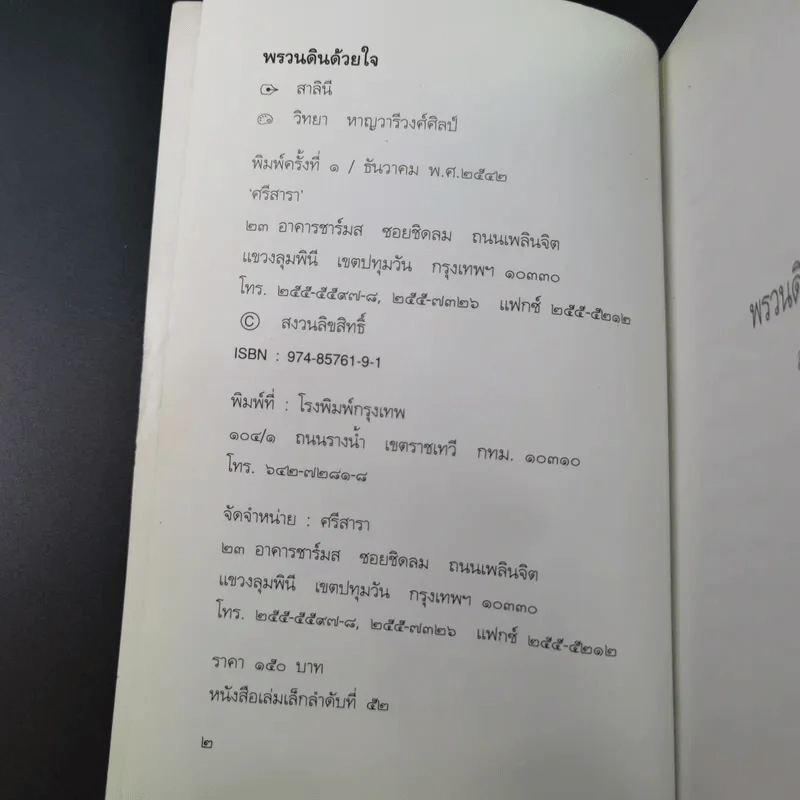 พรวนดินด้วยใจ
สาลินี
วิทยา หาญวารีวงศ์ศิลป์
พิมพ์ครั้งที่ ๑ / ธันวาคม พ.ศ.๒๕๔๒
'ศรีสารา'
๒๓ อาคารชาร์มส ซอยชิดลม ถนนเพลินจิต
แขวงลุมพินี เขตปทุมวัน กรุงเทพฯ ๑๐๓๓๐
โทร. ๒๕๕-๕๕๙๗-๘, ๒๕๕-๗๓๒๖ แฟกซ์ ๒๕๕-๕๒๑๒
© สงวนลิขสิทธิ์
ISBN : 974-85761-9-1
พิมพ์ที่ : โรงพิมพ์กรุงเทพ
๑๐๔/๑ ถนนรางน้ำ เขตราชเทวี กทม. ๑๐๓๑๐
โทร. ๖๔๒-๗๒๘๑-๘
จัดจำหน่าย : ศรีสารา
๒๓ อาคารชาร์มส ซอยชิดลม ถนนเพลินจิต
แขวงลุมพินี เขตปทุมวัน กรุงเทพฯ ๑๐๓๓๐
โทร. ๒๕๕-๕๕๙๗-๘, ๒๕๕-๗๓๒๖ แฟกซ์ ๒๕๕-๕๒๑๒
ราคา ๑๕๐ บาท
หนังสือเล่มเล็กลำดับที่ ๕๒
๒